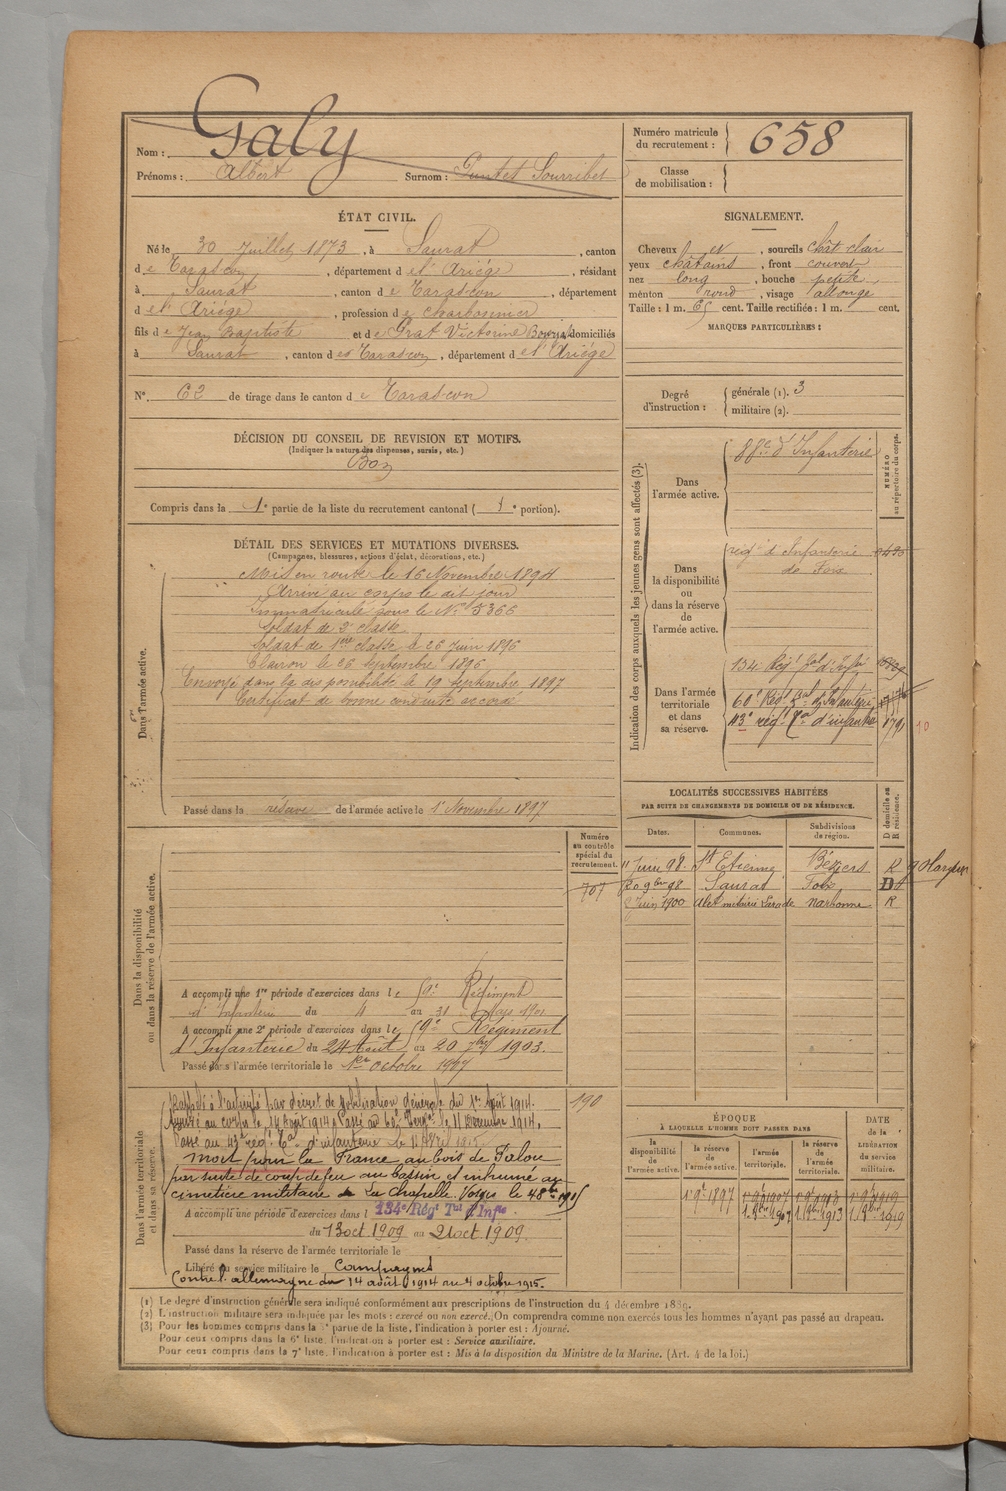 Nom : Galy
Prénoms : Albert Surnom :
Numéro matricule du recrutement : 658
Classe de mobilisation :
ÉTAT CIVIL.
Né le 30 Juillet 1873, à Saurat, canton
de Tarascon, département de l'Ariége, résidant
à Saurat, canton de Tarascon, département
de l'Ariége, profession de charbonnier
fils de Jean Baptiste et de Grat Victorine domiciliés
à Saurat, canton de Tarascon, département de l'Ariége
N° 62 de tirage dans le canton de Tarascon
SIGNALEMENT.
Cheveux et, sourcils chât clair
yeux châtains, front couvert
nez long, bouche petite,
menton rond, visage allongé
Taille : 1 m. 65 cent. Taille rectifiée : 1 m. cent.
MARQUES PARTICULIÈRES :
Degré d'instruction : générale (1). 3
militaire (2).
DÉCISION DU CONSEIL DE REVISION ET MOTIFS.
(Indiquer la nature des dispenses, sursis, etc.)
Bon
Compris dans la 1e partie de la liste du recrutement cantonal (1e portion).
DÉTAIL DES SERVICES ET MUTATIONS DIVERSES.
(Campagnes, blessures, actions d'éclat, décorations, etc.)
Dans l'armée active.
Mis en route le 16 Novembre 1894
Arrivé au corps le dit jour
Immatriculé sous le N° 5366
Soldat de 2e classe
Soldat de 1ère classe le 26 Juin 1896
Clairon le 26 septembre 1896
Envoyé dans la disponibilité le 19 Septembre 1897
Certificat de bonne conduite accordé
Passé dans la réserve de l'armée active le 1er Novembre 1897
Indication des corps auxquels les jeunes gens sont affectés (3).
NUMÉRO au répertoire du corps.
Dans l'armée active.
88e d'Infanterie
Dans la disponibilité ou dans la réserve de l'armée active.
régt d'Infanterie
de Foix
Dans l'armée territoriale et dans sa réserve.
134 Régt tal d'Infie
60e Régt tal d'Infanterie
43e régt tal d'infanterie
LOCALITÉS SUCCESSIVES HABITÉES
PAR SUITE DE CHANGEMENTS DE DOMICILE OU DE RÉSIDENCE.
Dates. Communes. Subdivisions de région. D domicile ou R résidence.
11 Juin 98. St Etienne Béziers R
20 9bre 98 Saurat Foix D
Juin 1900 Narbonne R
Numéro au contrôle spécial du recrutement.
707
Dans la disponibilité ou dans la réserve de l'armée active.
A accompli une 1re période d'exercices dans le Régiment
d'Infanterie du 4 au 31 Mars 1901
A accompli une 2e période d'exercices dans le Régiment
d'Infanterie du 24 Août au 20 7bre 1903.
Passé dans l'armée territoriale le 1er octobre 1907
190
Dans l'armée territoriale et dans sa réserve.
Rappelé à l'activité par décret de mobilisation générale du 1er Août 1914.
Arrivé au corps le 14 Août 1914. Passé au 60e Terral le 11 Décembre 1914.
Passé au 43e régt Tal d'infanterie le 11 Avril 1915.
mort pour la France au bois de Palou
par suite de coup de feu au bassin et inhumé au
cimetière militaire de La Chapelle. Vosges le 4 8bre 1915
A accompli une période d'exercices dans l 134e Régt Tal d'Infie.
du 13 oct. 1909 au 21 oct. 1909.
Passé dans la réserve de l'armée territoriale le
Libéré du service militaire le
Campagnes
Contre l'allemagne du 14 août 1914 au 4 octobre 1915.
ÉPOQUE
À LAQUELLE L'HOMME DOIT PASSER DANS
la disponibilité de l'armée active. la réserve de l'armée active. l'armée territoriale. la réserve de l'armée territoriale.
DATE de la LIBÉRATION du service militaire.
1er 9bre 1897 1er 9bre 1907 1er 9bre 1913 1er 9bre 1919
1. 8bre 1907 1. 8bre 1913 1. 8bre 1919
(1) Le degré d'instruction générale sera indiqué conformément aux prescriptions de l'instruction du 4 décembre 1889.
(2) L'instruction militaire sera indiquée par les mots : exercé ou non exercé. On comprendra comme non exercés tous les hommes n'ayant pas passé au drapeau.
(3) Pour les hommes compris dans la 1e partie de la liste, l'indication à porter est : Ajourné.
Pour ceux compris dans la 6e liste, l'indication à porter est : Service auxiliaire.
Pour ceux compris dans la 7e liste, l'indication à porter est : Mis à la disposition du Ministre de la Marine. (Art. 4 de la loi.)